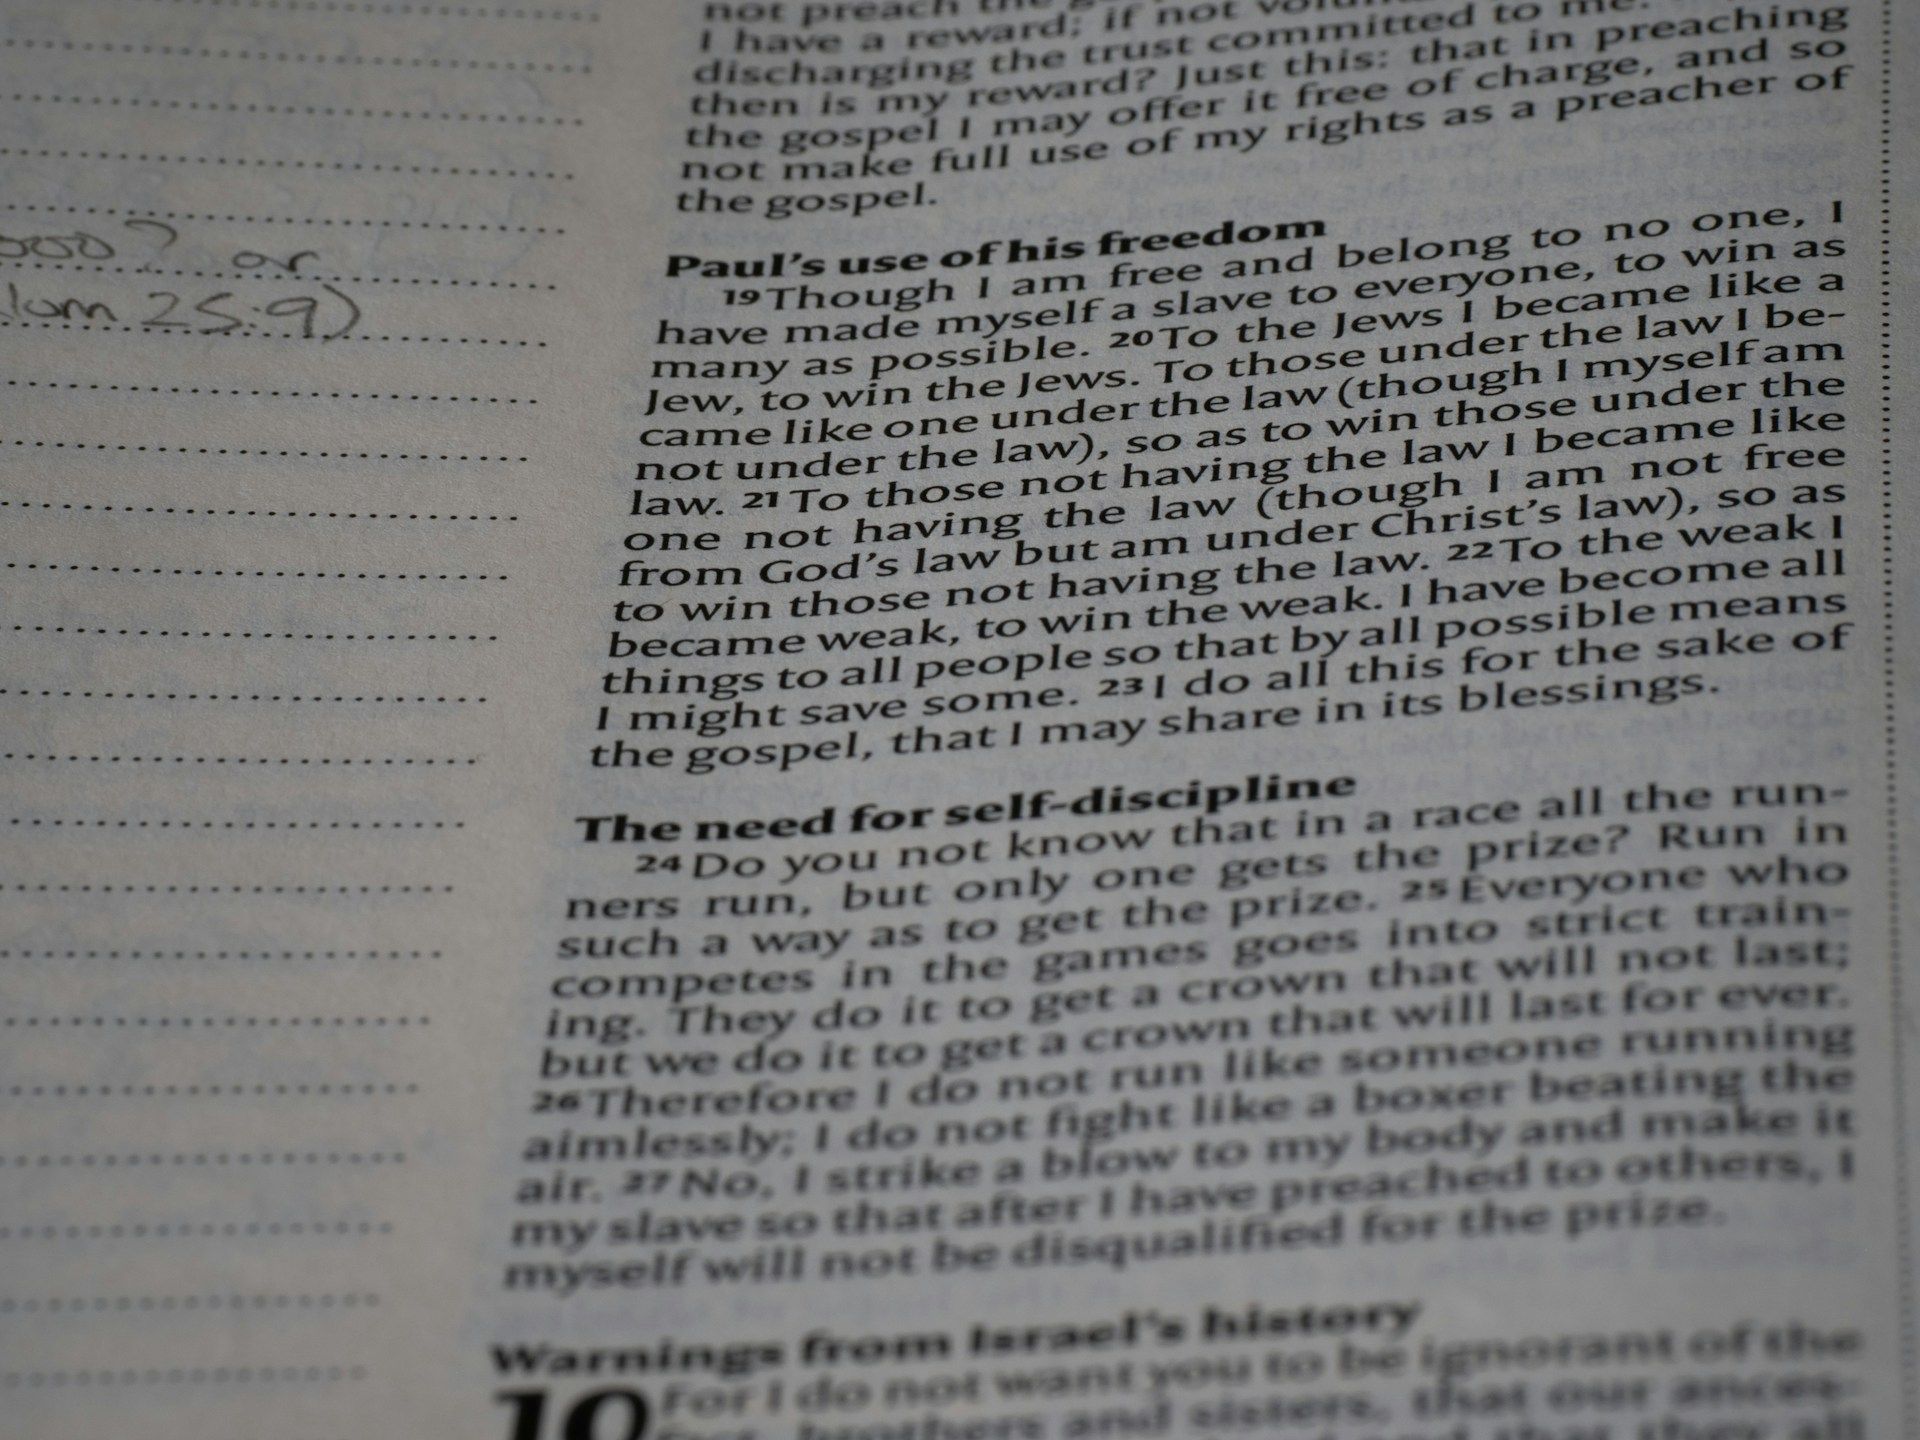 or
25:9)
not preach the
I have a reward; if not
discharging the trust committed to me.
then is my reward? Just this: that in preaching
the gospel I may offer it free of charge, and so
not make full use of my rights as a preacher of
the gospel.
Paul's use of his freedom
19 Though I am free and belong to no one, I
have made myself a slave to everyone, to win as
many as possible. 20 To the Jews I became like a
Jew, to win the Jews. To those under the law I be-
came like one under the law (though I myself am
not under the law), so as to win those under the
law. 21 To those not having the law I became like
one not having the law (though I am not free
from God's law but am under Christ's law), so as
to win those not having the law. 22 To the weak I
became weak, to win the weak. I have become all
things to all people so that by all possible means
I might save some. 23 I do all this for the sake of
the gospel, that I may share in its blessings.
The need for self-discipline
24 Do you not know that in a race all the run-
ners run, but only one gets the prize? Run in
such a way as to get the prize. 25 Everyone who
competes in the games goes into strict train-
ing. They do it to get a crown that will not last;
but we do it to get a crown that will last for ever.
26 Therefore I do not run like someone running
aimlessly; I do not fight like a boxer beating the
air. 27 No, I strike a blow to my body and make it
my slave so that after I have preached to others, I
myself will not be disqualified for the prize.
Warnings from Israel's history
10 For I do not want you to be ignorant of the
fact, brothers and sisters, that our ances-
that they all